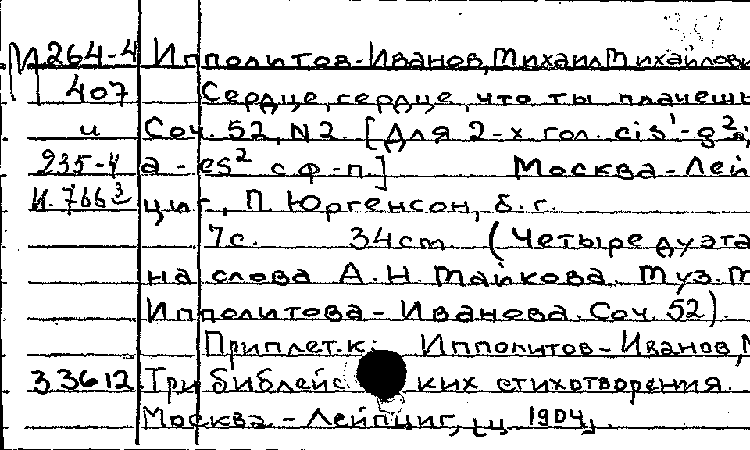 М 264-4 Ипполитов-Иванов, Михаил Михайлови
407 Сердце, сердце, что ты плачешь
и Соч. 52, N 2. [Для 2-х гол. cis¹-g²,
935-4 a-es² с ф-п.] Москва-Лей
И. 766³ циг, П. Юргенсон, б.г.
7с. 34cm. (Четыре дуэта
на слова А.Н. Майкова. Муз. М
Ипполитова-Иванова. Соч. 52).
Приплет. к: Ипполитов-Иванов, М
33612 Три библейских стихотворения.
Москва.-Лейпциг, [ц. 1904]